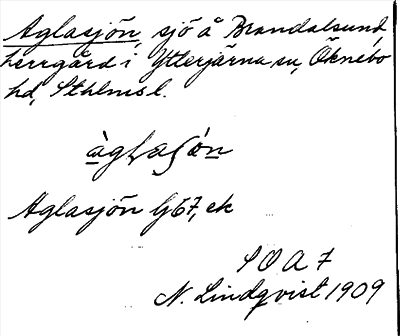 Aglasjön, sjö å Brandalsund,
herrgård i Ytterjärna sn, Öknebo
hd, Sthlms l.
Aglasjön G67, ek
SOA 7
N. Lindqvist 1909